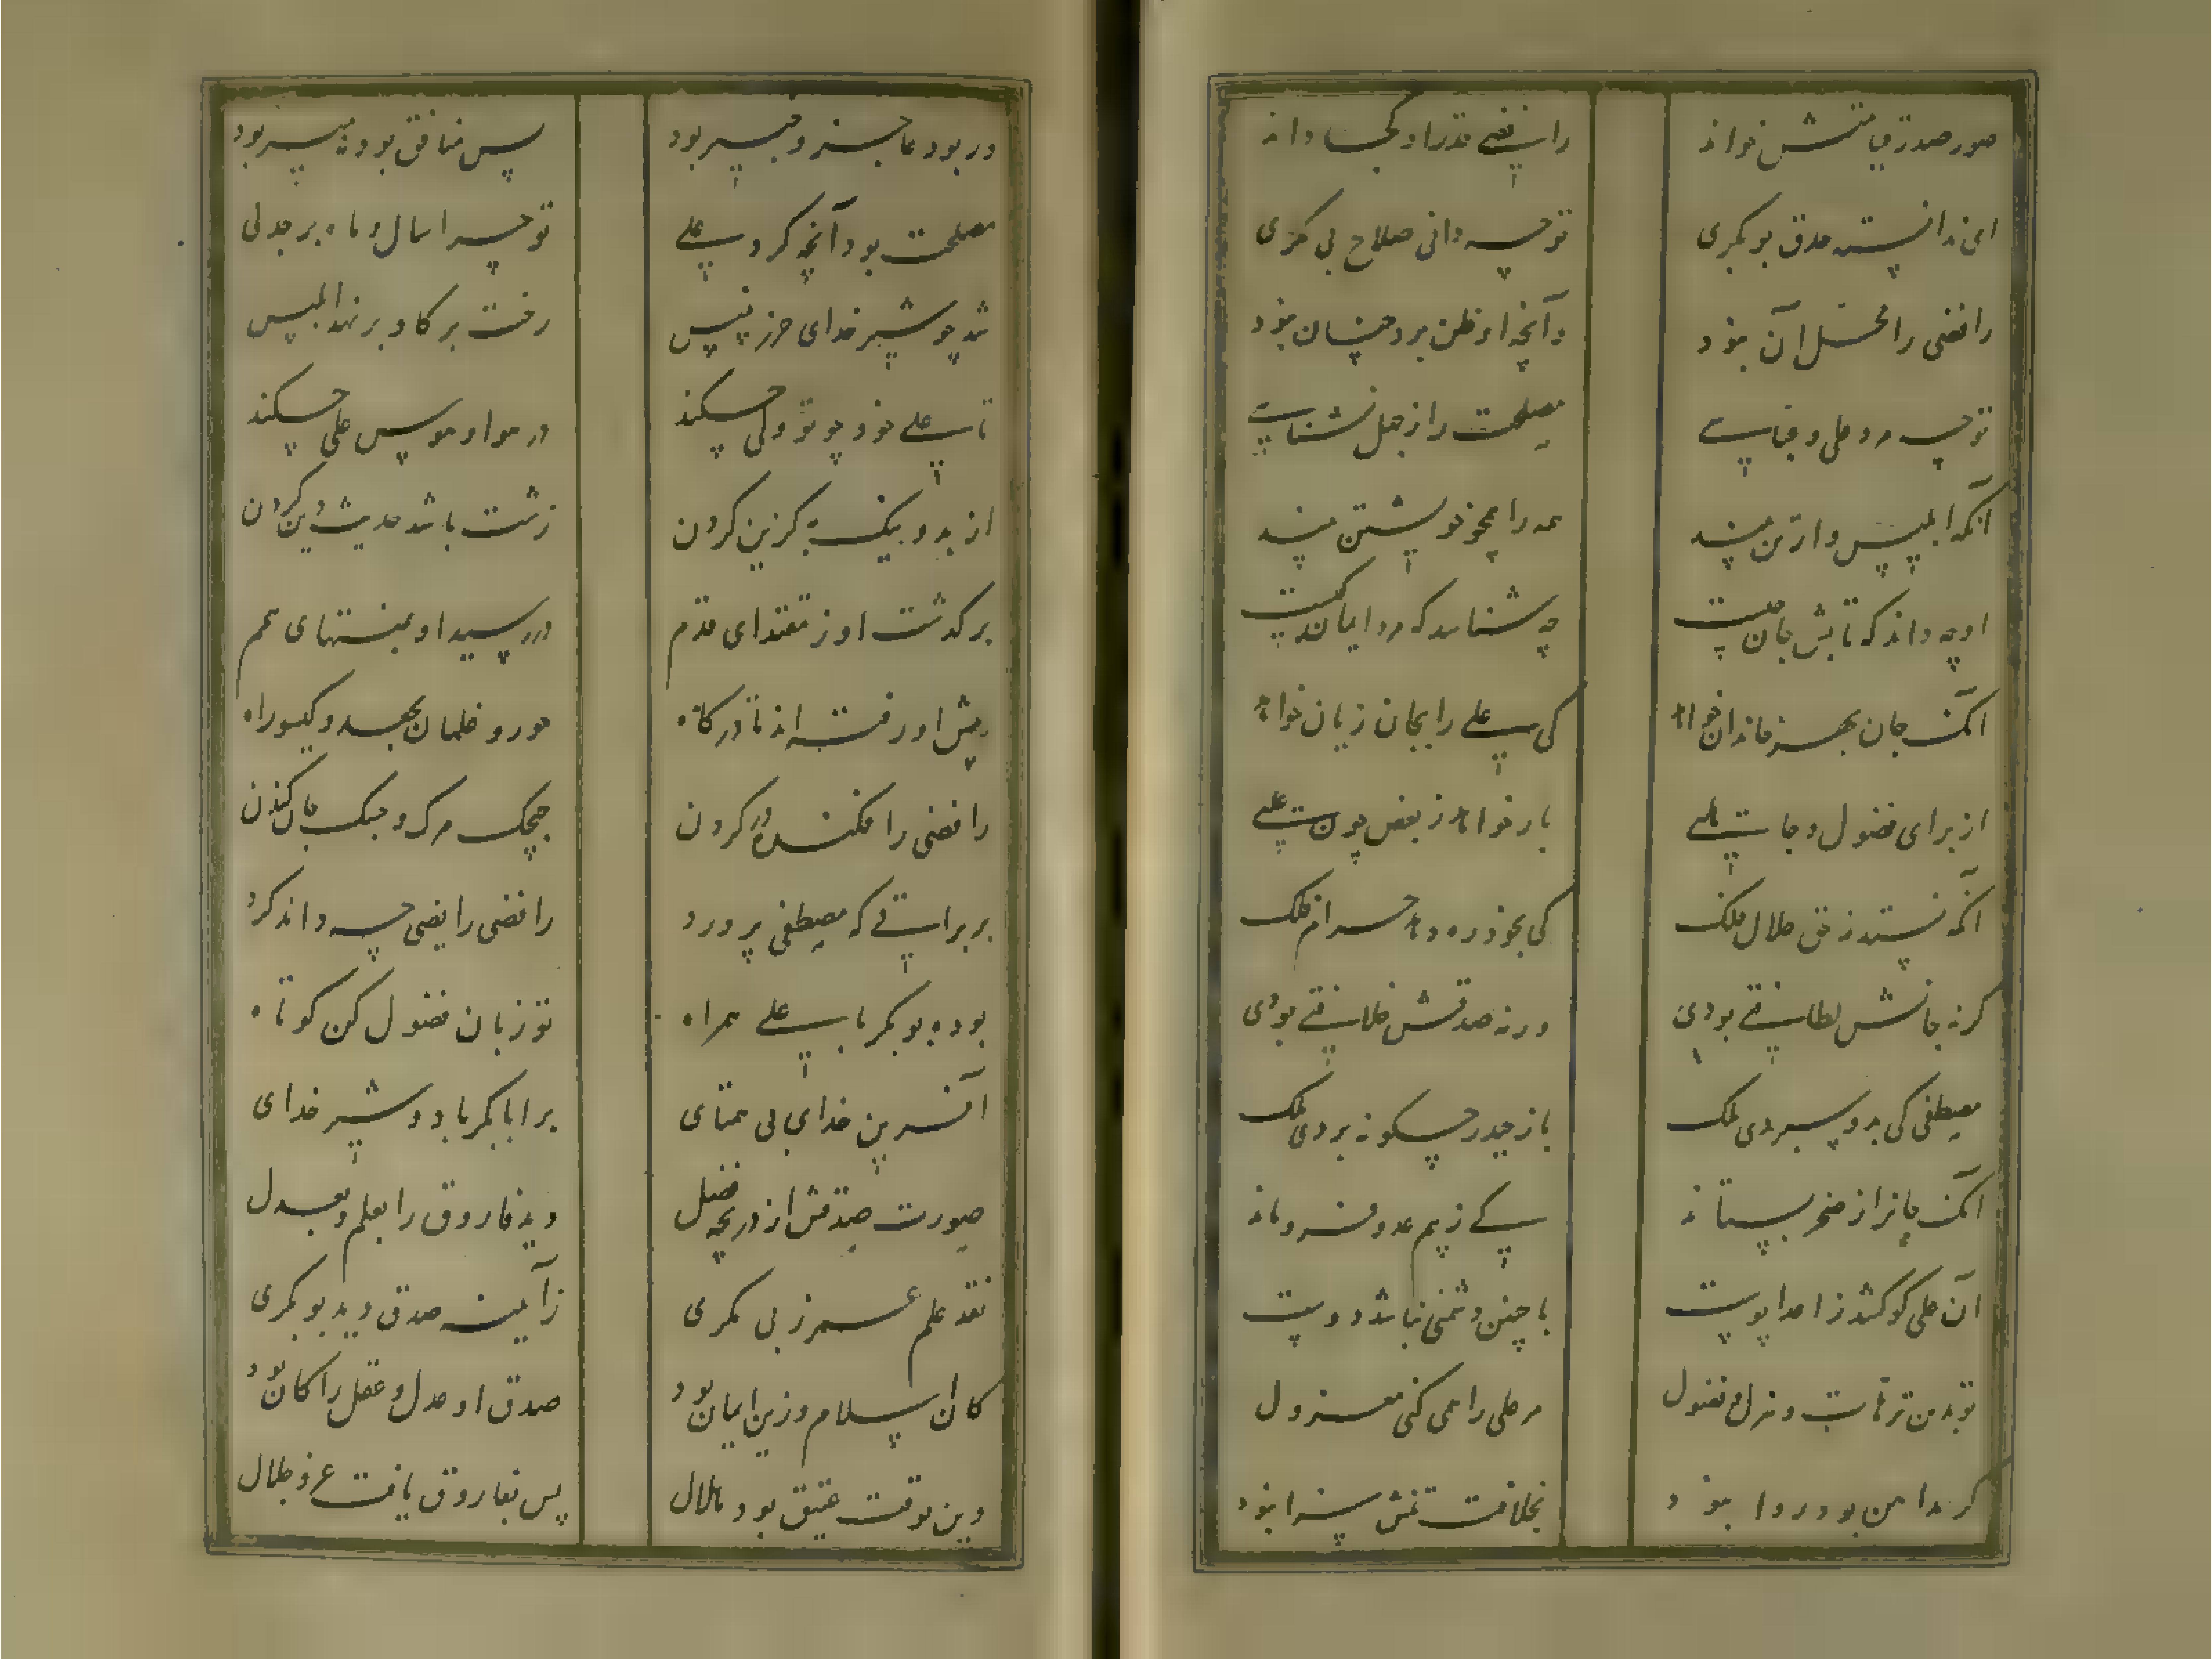 صور صدر قیامتش خواند
رافضی قدر او کجا داند
ای ندانسته صدق بوبکری
توچه دانی صلاح بی مکری
رافضی را محل آن نبود
وآنچه او ظن برد چنان نبود
توچه مرد علی و عباسی
مصلحت را ز جهل نشناسی
آنکه ابلیس وار تن بیند
همه را همچو خویشتن بیند
او چه داند که تابش جان چیست
چه شناسد که مرد ایمان کیست
آنک جان بهر خاندان خواهد
کی علی را بجان زیان خواهد
از برای فضول و جاه علی
بار خواهد ز بعض چون علی
آنکه نستد ز حق حلال فلک
کی بخود ره دهد حرام فلک
گر نه جانش لطایفی بودی
ورنه صدقش خلایفی بودی
مصطفی کی بدو سپردی ملک
باز حیدر چگونه بردی ملک
آنک جانرا ز ضخر بستاند
کی ز بیم عدو فرو ماند
آن علی کو کشد ز اعدا پوست
با چنین دشمنی نباشد دوست
تو بدین ترهات و هزل و فضول
مر علی را همی کنی معزول
گر بدا من بود روا نبود
بخلافت تنش سزا نبود
ور بود عاجز و جسیر بود
پس منافق بود نه میر بود
مصلحت بود آنچه کرد علی
توچه اسال و ماه برجدلی
شد چو شیر خدای حرز نویس
رفت بر گاو بر نهد ابلیس
تا علی خود چو تو ولی چکند
در هوا و هوس علی چکند
از بد و نیک به گزین کردن
زشت باشد حدیث دین کردن
برگذشت او ز مقتدای قدم
در رسید او بمنتهای همم
پیش او رفته اند تا درگاه
حور و غلمان بجعد و گیسو راه
رافضی را فکنده در گردن
چحک مرگ و جنگ جان کندن
بر براقی که مصطفی پرورد
رافضی رایضی چه داند کرد
بوده بوبکر با علی همراه
تو زبان فضول کن کوتاه
آفرین خدای بی همتای
بر ابابکر باد و شیر خدای
صورت صدقش از دریچه فضل
دید فاروق را بعلم و بعدل
نقد علم عمر ز بی مکری
ز آینه صدق دید بوبکری
کان اسلام و زین ایمان بود
صدق او عدل و عقل را کان بود
دین بوقت عتیق بود هلال
پس بفاروق یافت عز و جلال